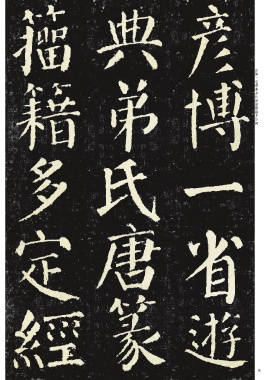 彦博一省遊
典弟氏唐篆
籀籍多定經